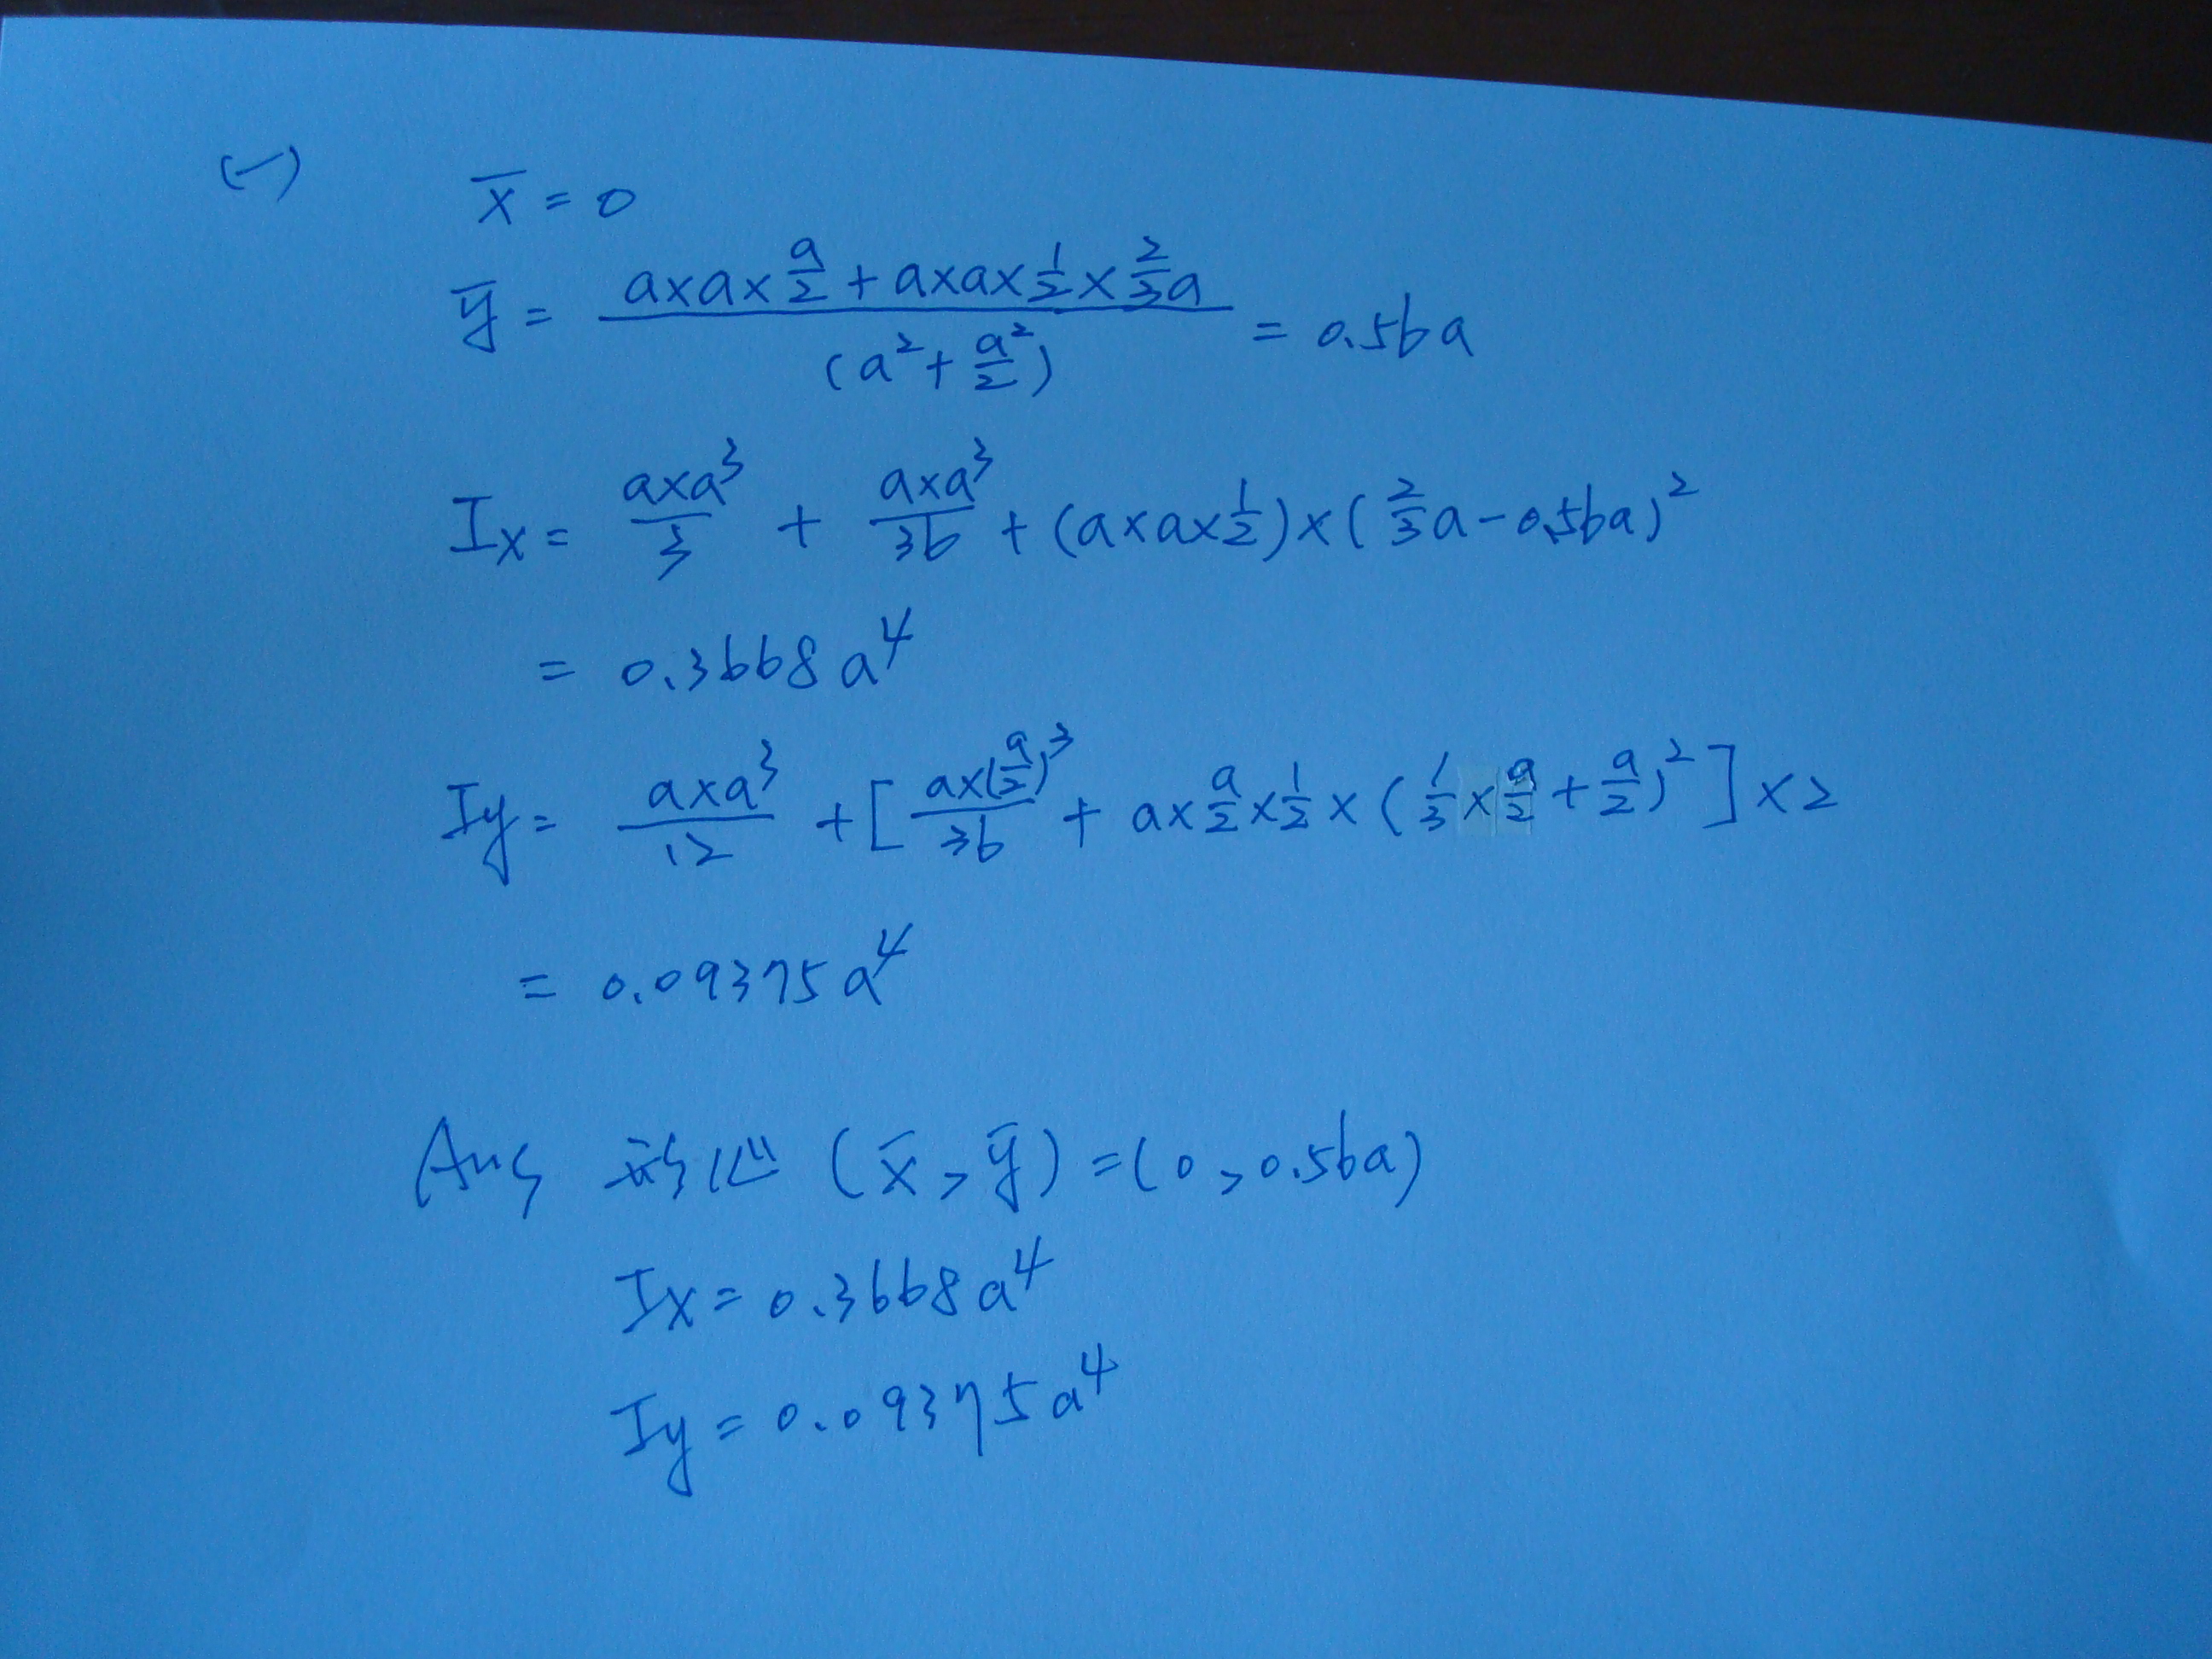 (一) x̄ = 0
ȳ = (a×a×a/2 + a×a×1/2×2/3a) / (a²+a²/2) = 0.56a
Ix = a×a³/3 + a×a³/36 + (a×a×1/2)×(2/3a-0.56a)²
= 0.3668a⁴
Iy = a×a³/12 + [a×(a/2)³/36 + a×a/2×1/2×(1/3×a/2+a/2)²]×2
= 0.09375a⁴
Ans 形心 (x̄, ȳ) = (0, 0.56a)
Ix = 0.3668a⁴
Iy = 0.09375a⁴